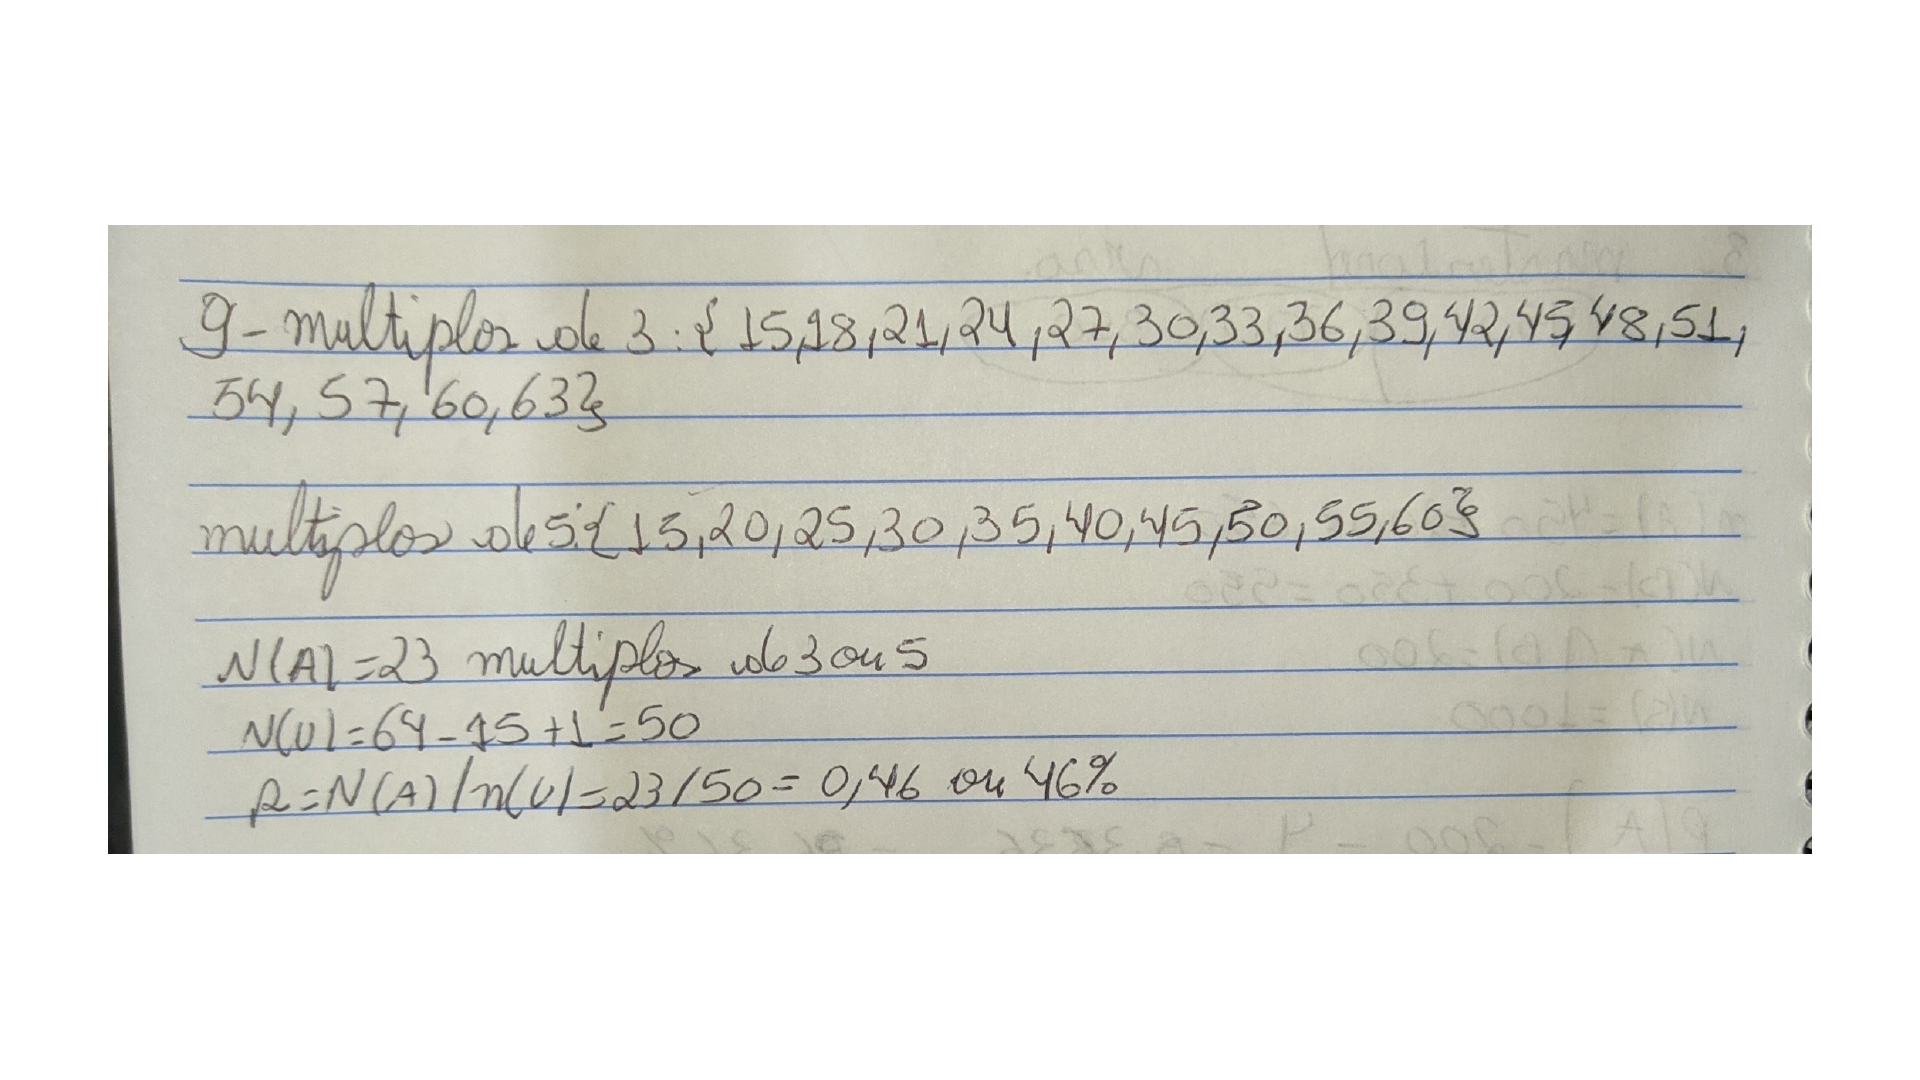 9- multiplos de 3: { 15,18,21,24,27,30,33,36,39,42,45,48,51,
54,57,60,63}
multiplos de 5:{15,20,25,30,35,40,45,50,55,60}
N(A)=23 multiplos de 3 ou 5
N(U)=64-15+1=50
P=N(A)/n(U)=23/50= 0,46 ou 46%